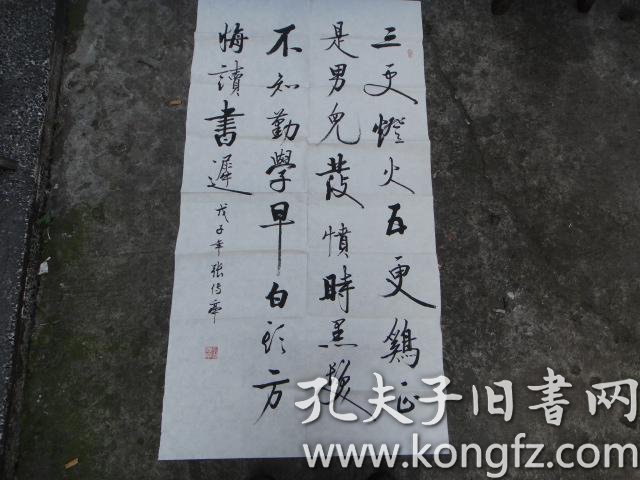 三更燈火五更鷄正
是男兒發憤時黑髮
不知勤學早白頭方
悔讀書遲
戊子年張傳
孔夫子旧书网
www.kongfz.com